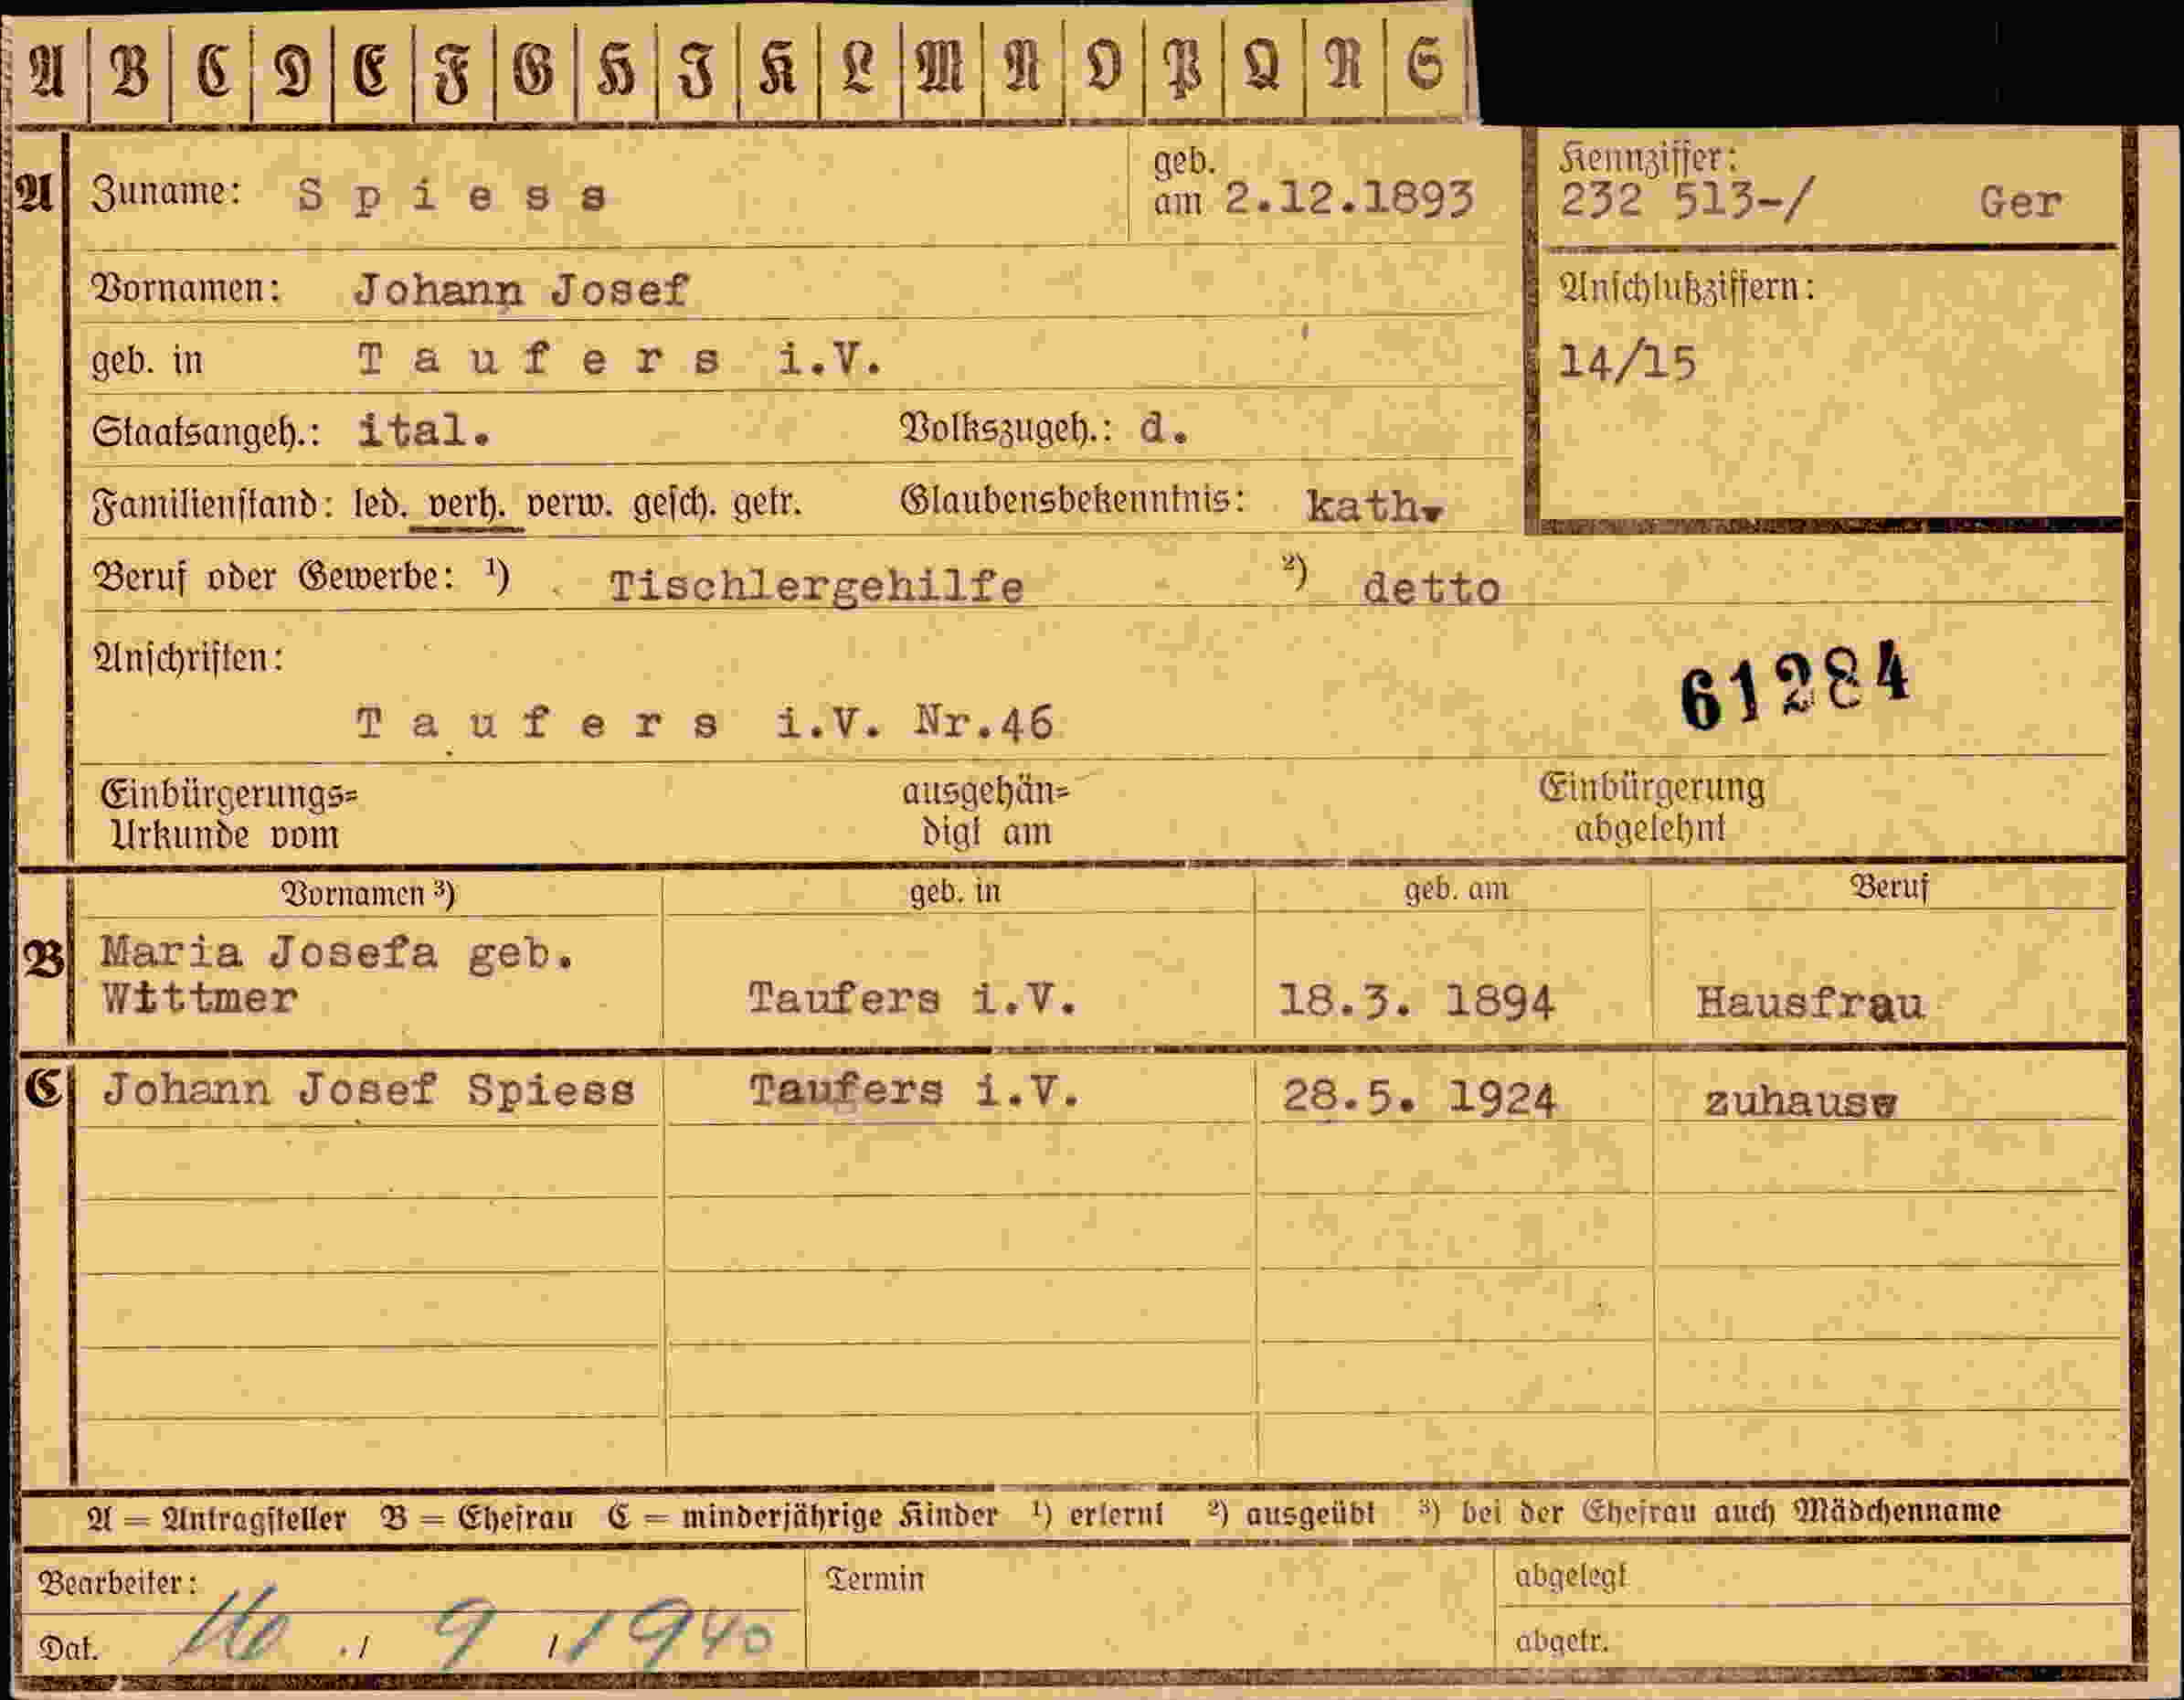 A B C D E F G H J K L M N O P Q R S
A Zuname: Spiess geb. am 2.12.1893 Kennziffer: 232 513-/ Ger
Vornamen: Johann Josef Anschlußziffern:
geb. in Taufers i.V. 14/15
Staatsangeh.: ital. Volkszugeh.: d.
Familienstand: led. verh. verw. gesch. getr. Glaubensbekenntnis: kath.
Beruf oder Gewerbe: ¹) Tischlergehilfe ²) detto
Anschriften:
61284
Taufers i.V. Nr.46
Einbürgerungs= ausgehän= Einbürgerung
Urkunde vom digt am abgelehnt
Vornamen ³) geb. in geb. am Beruf
B Maria Josefa geb.
Wittmer Taufers i.V. 18.3. 1894 Hausfrau
C Johann Josef Spiess Taufers i.V. 28.5. 1924 zuhause
A = Antragsteller B = Ehefrau C = minderjährige Kinder ¹) erlernt ²) ausgeübt ³) bei der Ehefrau auch Mädchenname
Bearbeiter: Termin abgelegt
Dat. 16./9/1940 abgetr.